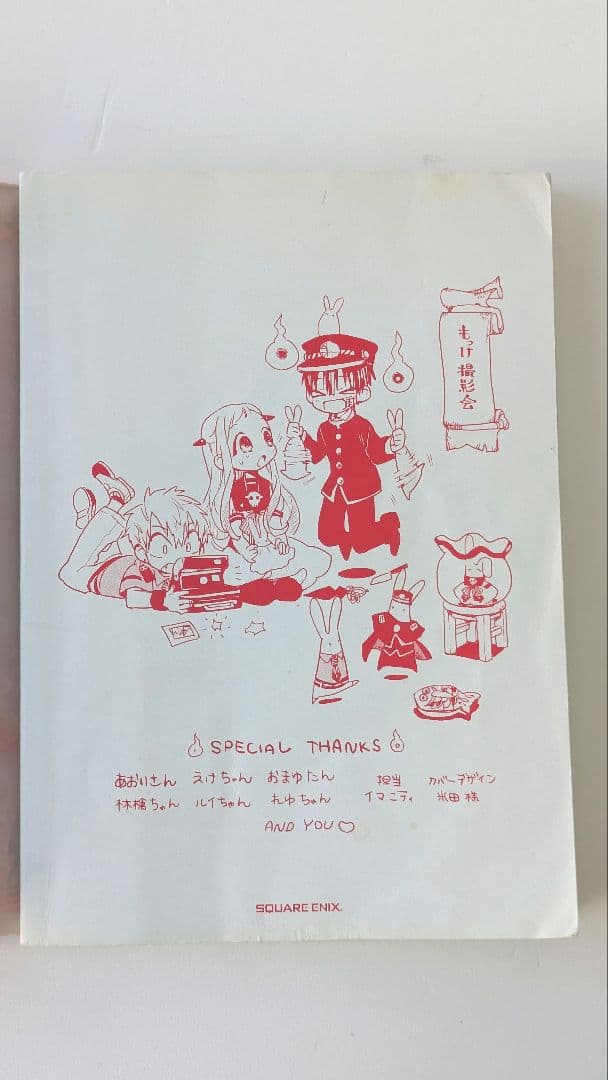 もっけ撮影会
SPECIAL THANKS
あおいさん えけちゃん おまゆたん 担当 カバーデザイン
林檎ちゃん ルイちゃん れゆちゃん イマニティ 米田 様
AND YOU♡
SQUARE ENIX.